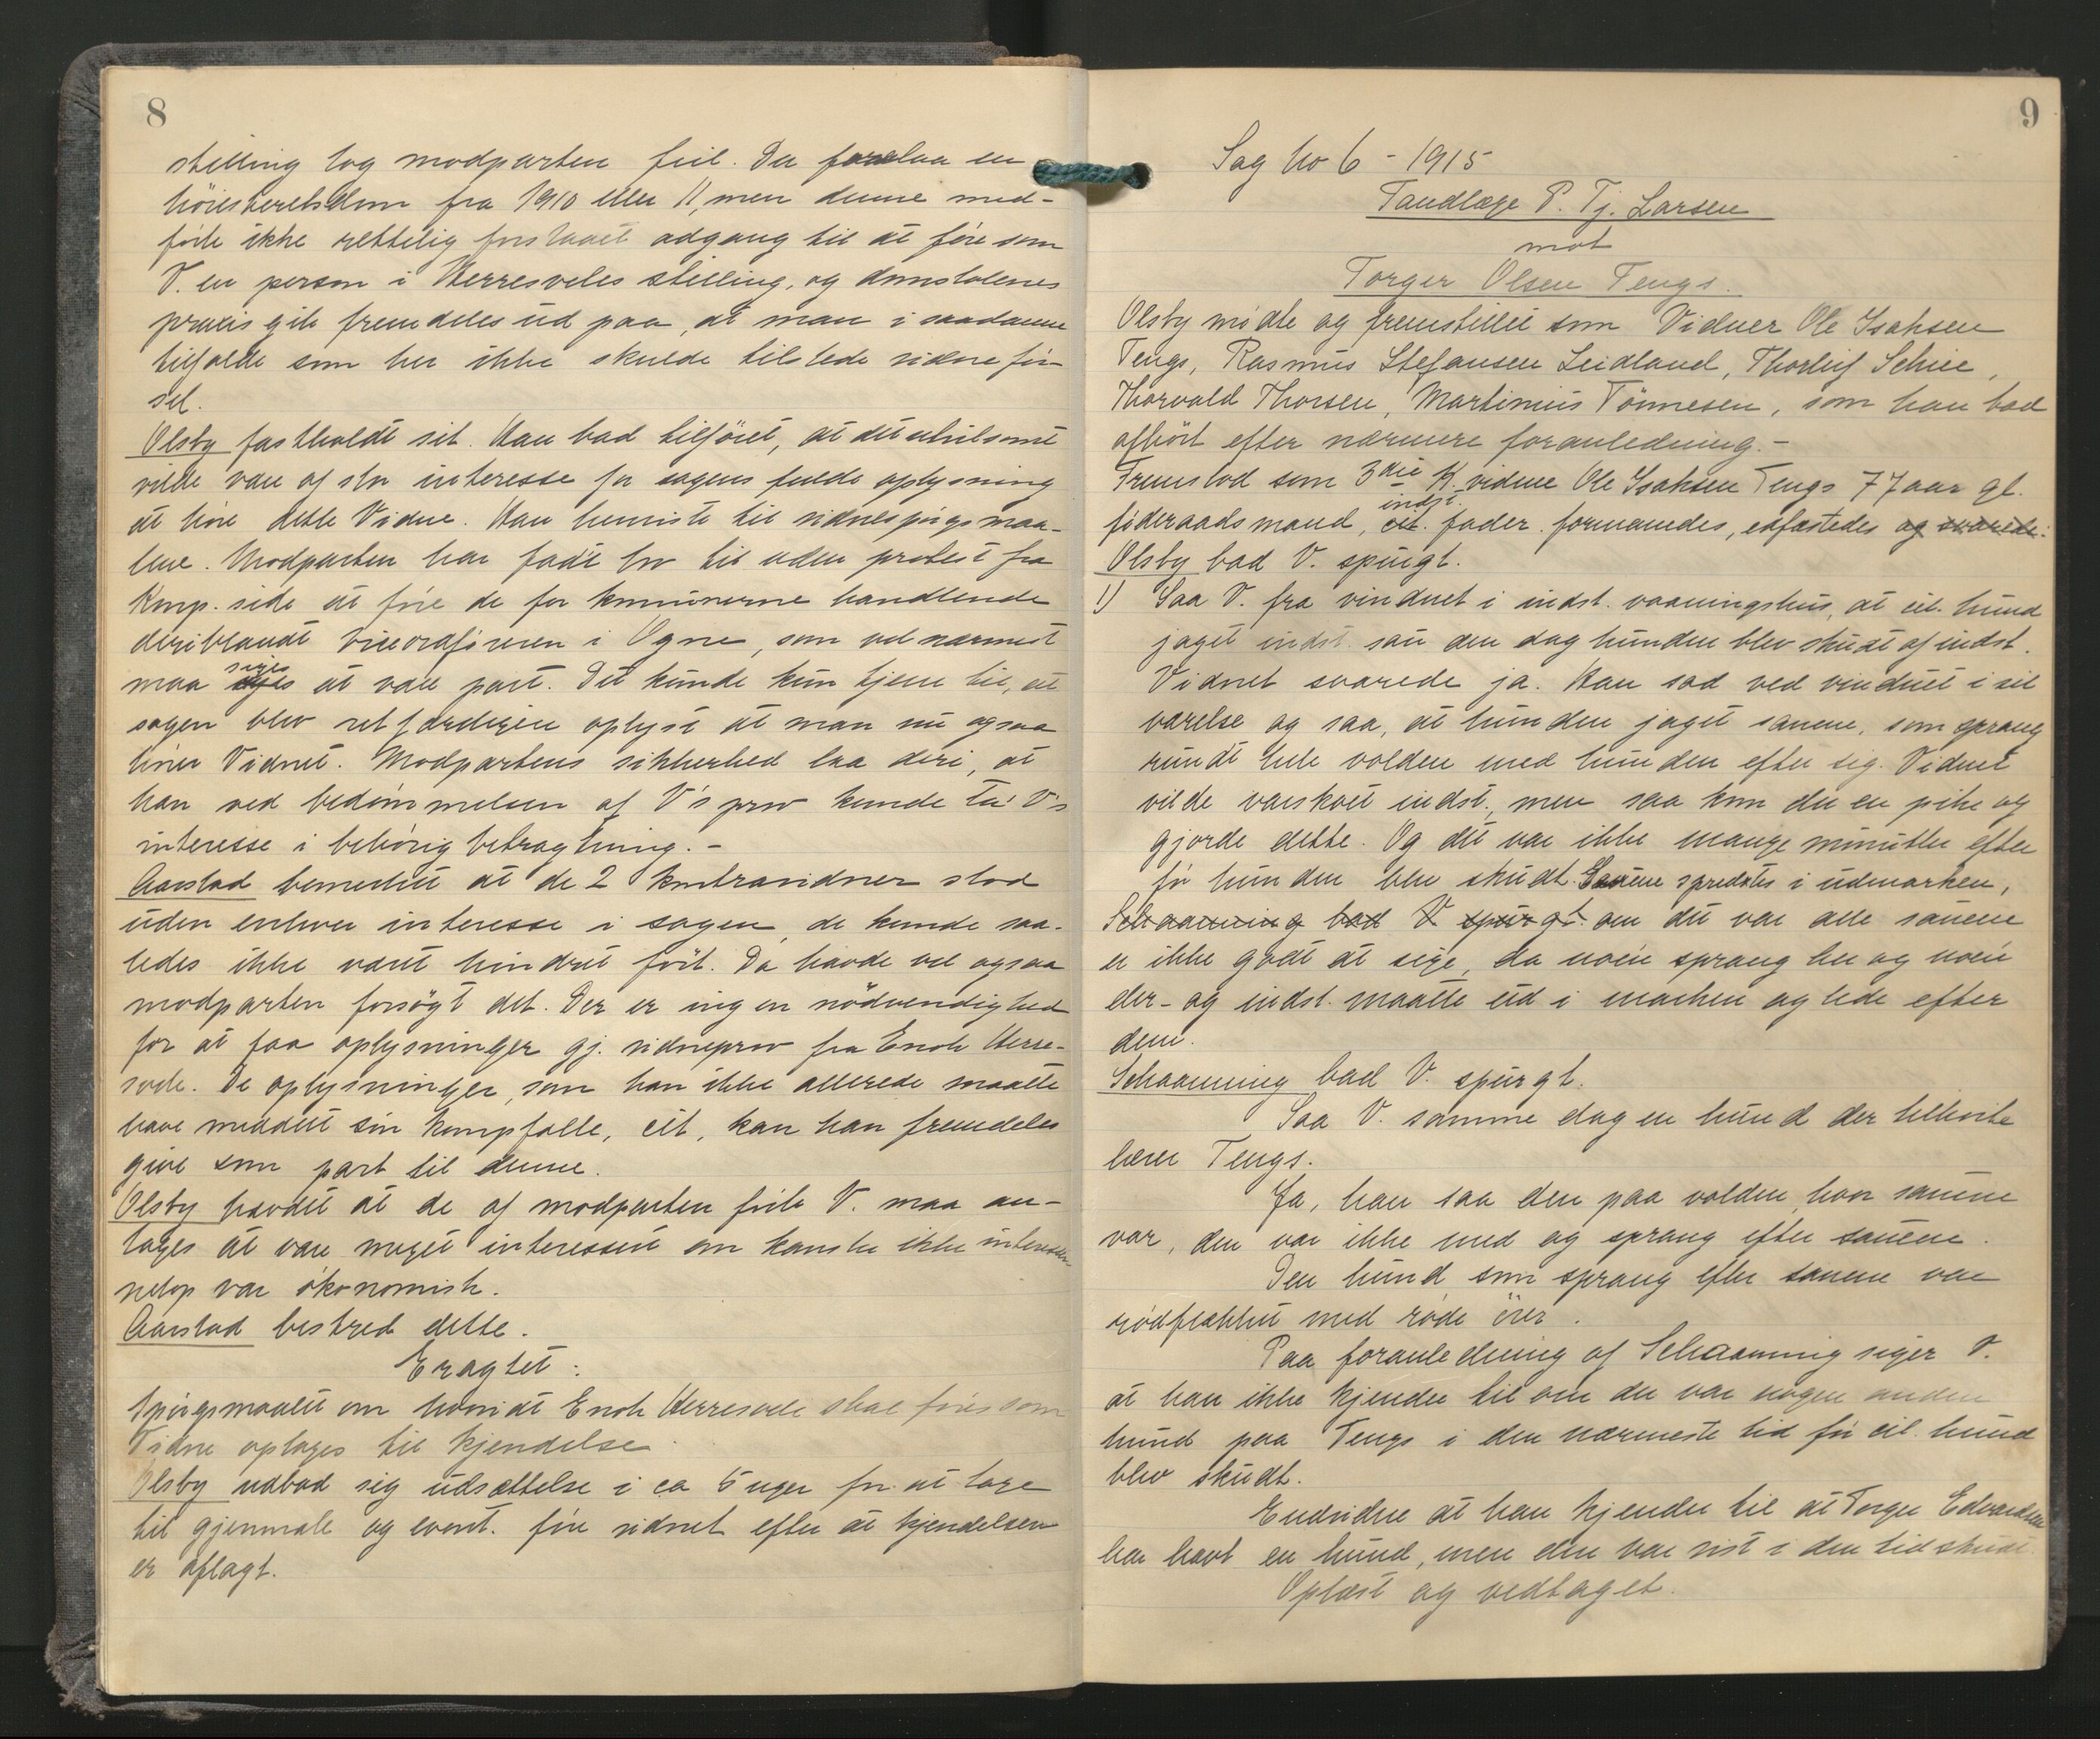 8
stilling tog modparten feil. Der forelaa en
höiesteretsdom fra 1910 eller 11, men denne med-
förte ikke rettelig forstaaet adgang til at före som
V. en person i Herresveles stilling, og domstolenes
praxis gik fremdeles ud paa, at man i saadanne
tilfælde som her ikke skulde tilstede vidneför-
sel.
Olsby fastholdt sit. Han bad tilföiet, at det utvilsomt
vilde være af stor interesse for sagens fulde oplysning
at höre dette Vidne. Han henviste til vidnespörgsmaa-
lene. Modparten har faaet lov til uden protest fra
Komp. side at före de for kommunerne handlende
deriblandt viceordföreren i Ogne, som vel nærmest
maa siges at være part. Det kunde kun tjene til, at
sagen blev retfærdigen oplyst at man nu ogsaa
hörer Vidnet. Modpartens sikkerhed laa deri, at
han ved bedömmelsen af V's prov kunde ta V's
interesse i behörig betragtning. -
Aarstad bemerket at de 2 kontravidner stod
uden enhver interesse i sagen, de kunde saa-
ledes ikke været hindret fört. Da havde vel ogsaa
modparten forsögt det. Der er ingen nödvendighed
for at faa oplysninger gj. vidneprov fra Enok Herre-
svele. De oplysninger, som han ikke allerede maatte
have meddelt sin kompfælle, cit, kan han fremdeles
give som part til denne.
Olsby hævdet at de af modparten förte V. maa an-
tages at være meget interesseret om kanske ikke interessen
netop var ökonomisk.
Aarstad bestred dette.
Eragtet:
Spörgsmaalet om hvorvidt Enok Herresvele skal föres som
Vidne optages til kjendelse.
Olsby udbad sig udsættelse i ca 5 uger for at tage
til gjenmæle og event. före vidnet efter at kjendelsen
er aflagt.
9
Sag No 6 - 1915
Tandlæge P. Tj. Larsen
mot
Torger Olsen Tengs.
Olsby mödte og fremstillet som Vidner Ole Isaksen
Tengs, Rasmus Stefansen Leidland, Thorleif Schiee,
Thorvald Thorsen, Martinius Tönnesen, som han bad
afhört efter nærmere foranledning. -
Fremstod som 3die K. vidne Ole Isaksen Tengs 77 aar gl.
indst.
föderaadsmand, cit. fader. formanedes, edfæstedes og svarede:
Olsby bad V. spurgt.
1) Saa V. fra vinduet i indst. vaaningshus, at cit. hund
jaget indst. sau den dag hunden blev skudt af indst.
Vidnet svarede ja. Han sad ved vinduet i sit
værelse og saa, at hunden jaget sauene, som sprang
rundt hele volden med hunden efter sig. Vidnet
vilde varskoet indst., men saa kom der en pike og
gjorde dette. Og det var ikke mange minutter efter
för hunden blev skudt. Sauene spredtes i udmarken,
Schaanning bad V spurgt. om det var alle sauene
er ikke godt at sige, da noen sprang her og noen
der - og indst. maatte ud i marken og lede efter
dem.
Schaanning bad V. spurgt.
Saa V. samme dag en hund der tilhörte
hører Tengs.
Ja, han saa den paa volden, hvor sauene
var, den var ikke med og sprang efter sauene.
Den hund som sprang efter sauene var
rödflækket med röde örer.
Paa foranledning af Schaanning siger V.
at han ikke kjender til om der var nogen anden
hund paa Tengs i den nærmeste tid för cit. hund
blev skudt.
Endvidere at han kjender til at Torger Edvardsen
har havt en hund, men den var vist i den tid skudt.
Oplæst og vedtaget.